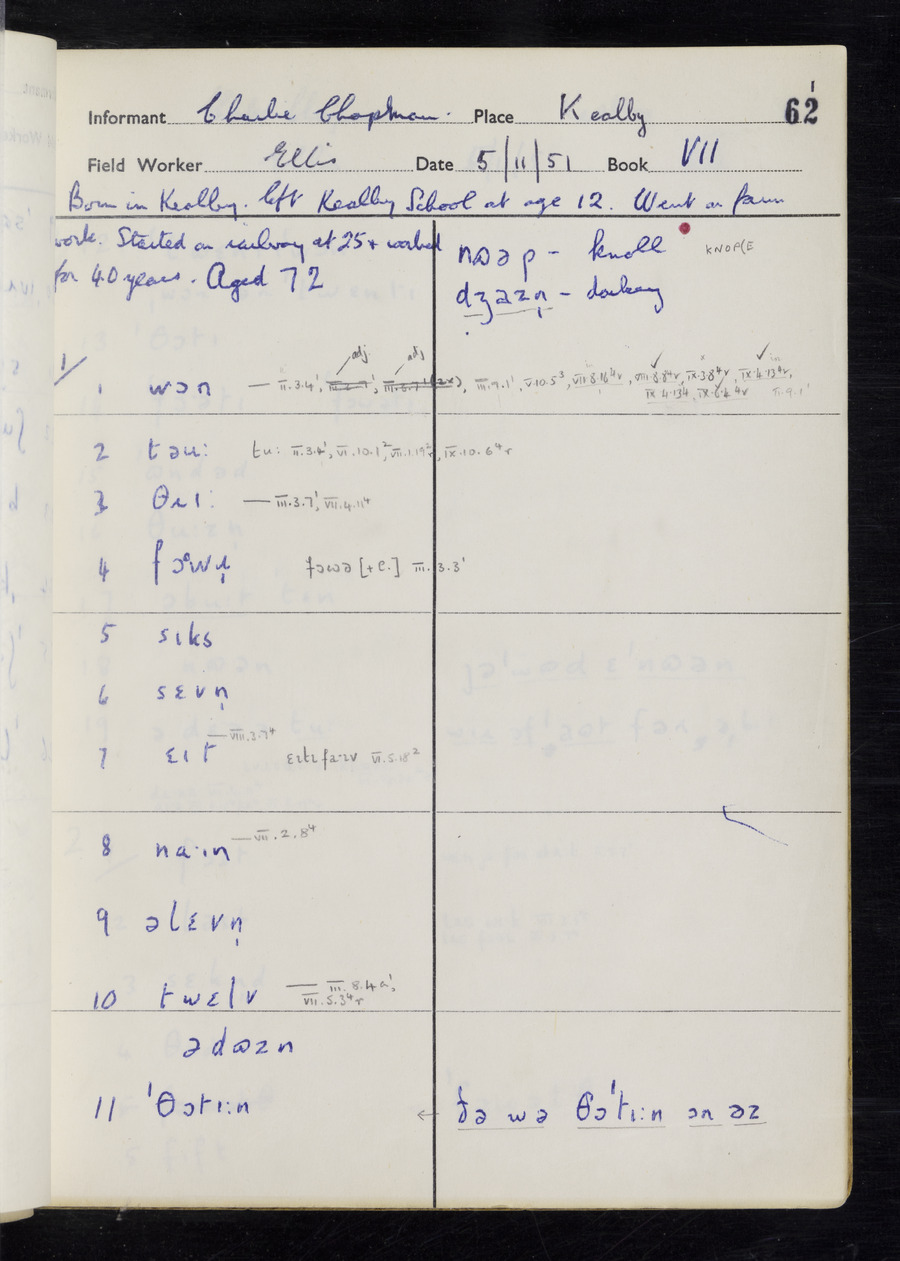 1
62
Informant Charlie Chapman. Place Kealby
Field Worker Ellis Date 5/11/51 Book VII
Born in Kealby. Left Kealby School at age 12. Went on farm
work. Started on railway at 25 + worked
for 40 years. Aged 72
nɒəp – knoll KNOP(E
dʒazn̩ – donkey
1/
adj. adj
1 wɔn — II.3.4¹, III.9.1¹, V.10.5³, VII.8.16⁴r, VIII.8.8⁴r, IX.3.8⁴r, IX.4.13⁴r,
IX.4.13⁴, IX.6.4⁴r III.9.1¹
2 təu: tu: II.3.4¹, VI.10.1², VII.1.19²r, IX.10.6⁴r
3 θɹi: — III.3.7¹, VII.4.11⁴
4 fɔᵊwɹ̩ fɔwə [+ C.] III.3.3¹
5 sɪks
6 sɛvn̩
7 ɛɪt — VIII.3.7⁴ ɛɪtɪfaːɪv VI.5.18²
8 na·ɪn — VII.2.8⁴
9 əlɛvn̩
10 twɛlv — III.8.4a¹,
VII.5.3⁴r
ədɒzn
11 ˈθɔtɪ:n ← ðə wə θɔˈtɪ:n ɔn əz